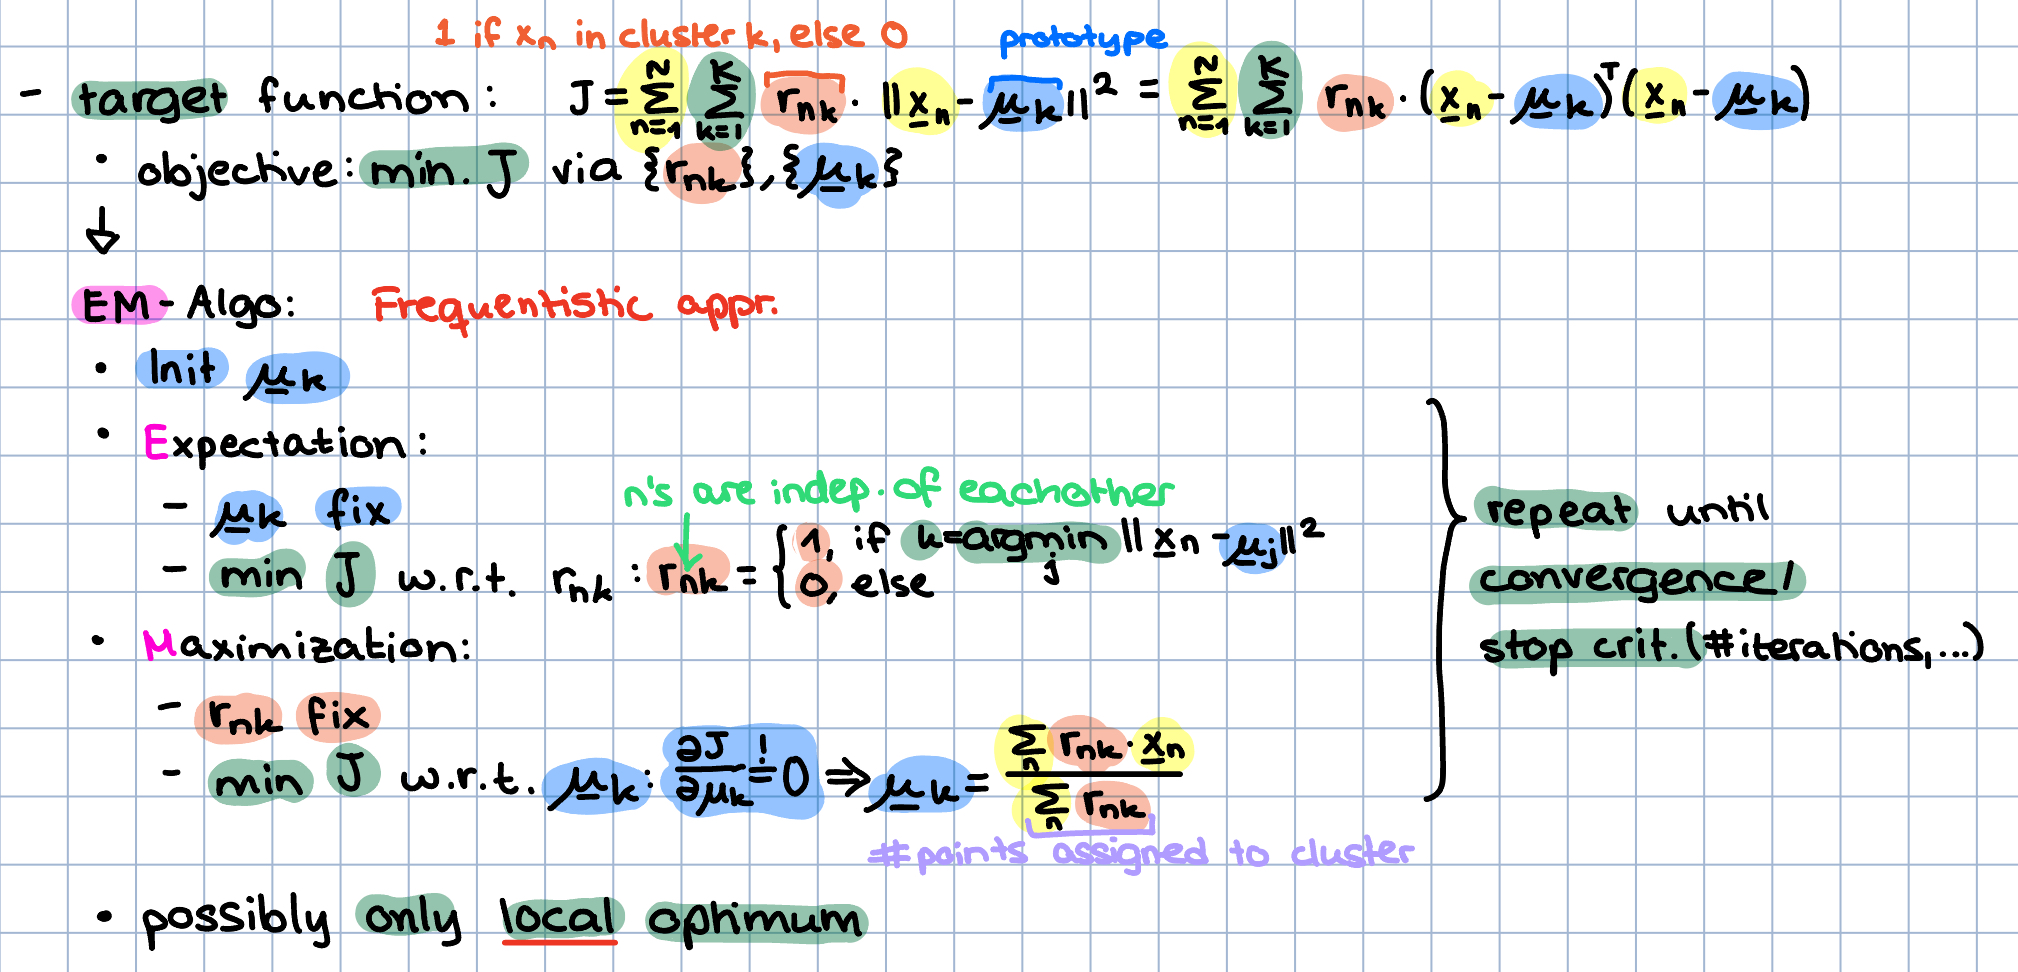 1 if xn in cluster k, else 0 prototype
- target function: J = Σ_{n=1}^{N} Σ_{k=1}^{K} r_nk · ||x_n - μ_k||² = Σ_{n=1}^{N} Σ_{k=1}^{K} r_nk · (x_n - μ_k)^T (x_n - μ_k)
• objective: min. J via {r_nk}, {μ_k}
↓
EM-Algo: Frequentistic appr.
• Init μ_k
• Expectation:
n's are indep. of eachother
- μ_k fix
- min J w.r.t. r_nk : r_nk = { 1, if k = argmin_j ||x_n - μ_j||²
0, else
• Maximization:
- r_nk fix
- min J w.r.t. μ_k: ∂J/∂μ_k != 0 ⇒ μ_k = Σ_n r_nk · x_n / Σ_n r_nk
#points assigned to cluster
} repeat until
convergence/
stop crit. (#iterations,...)
• possibly only local optimum